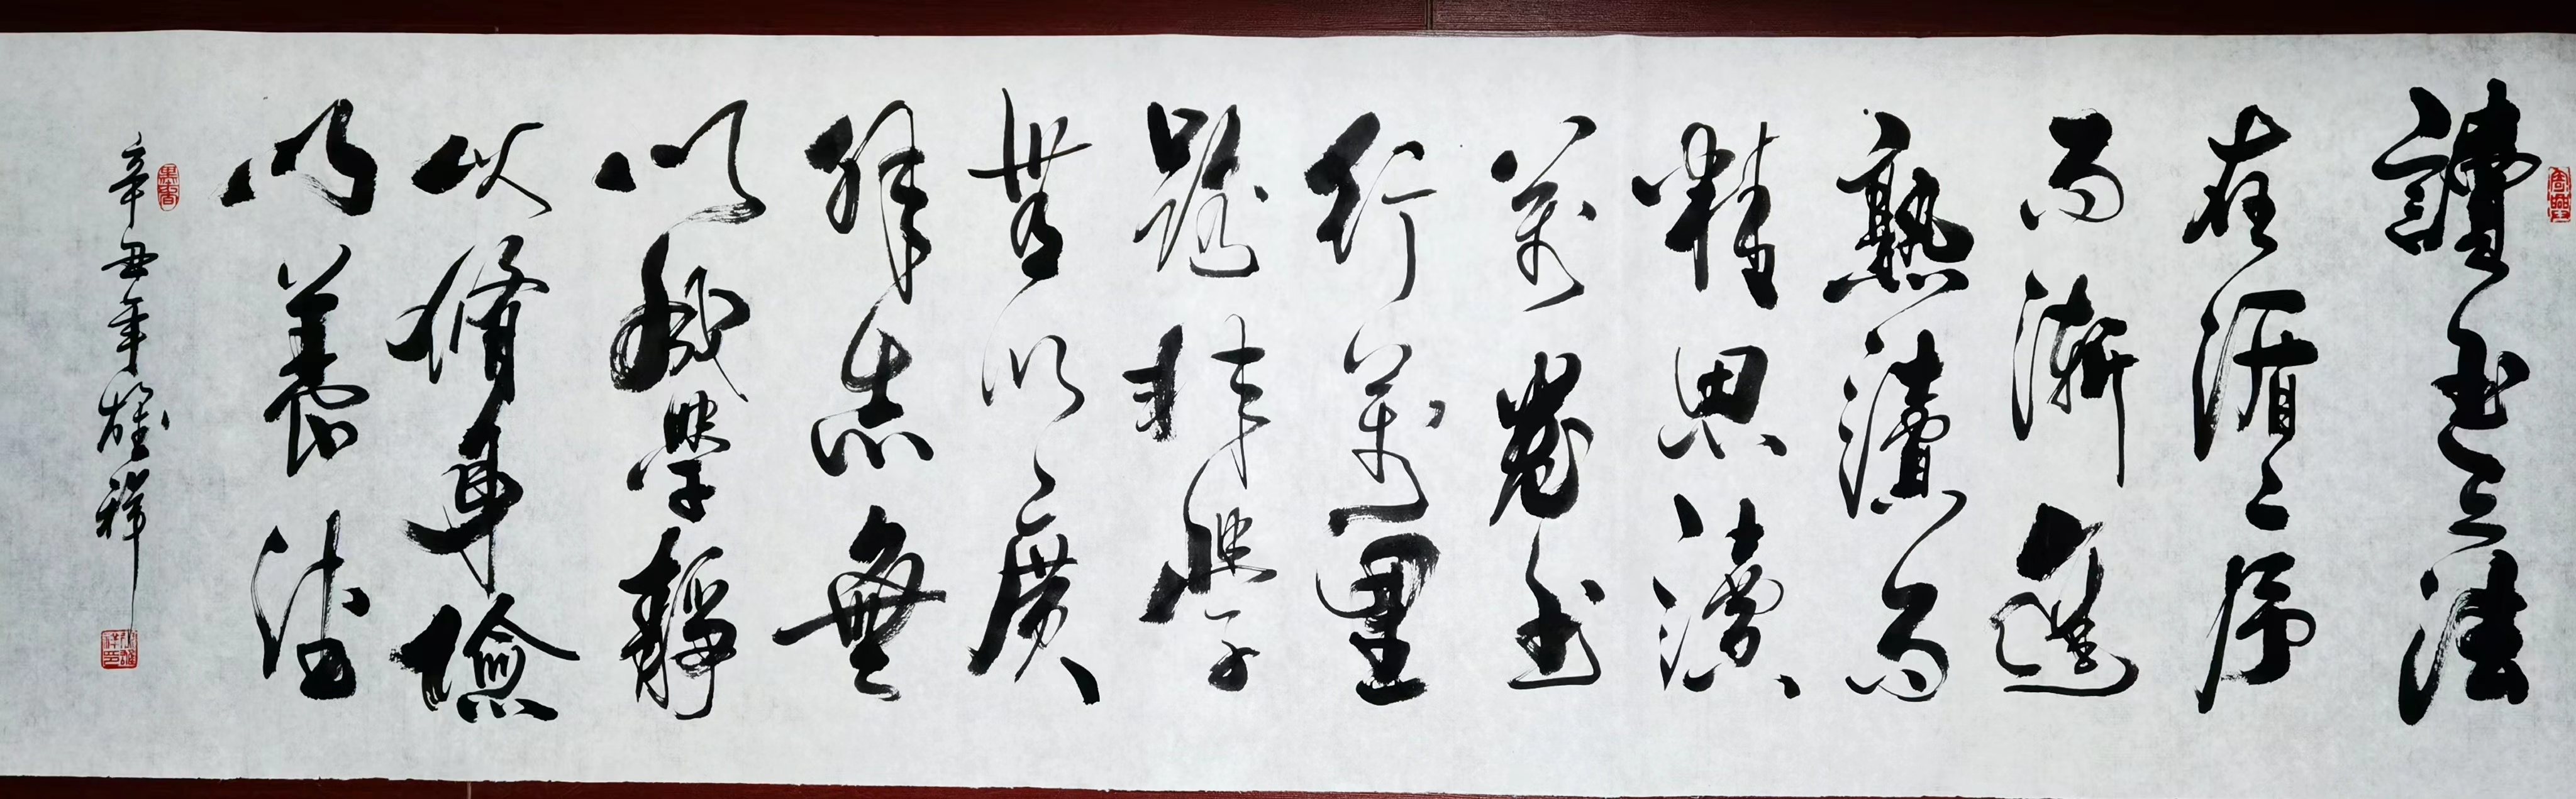 讀書之法
在循之序
而漸進
熟讀而
精思讀
萬卷書
行萬里
路非學
無以廣
非志無
以成學靜
以脩身儉
以養德
辛丑年雄祥
墨香